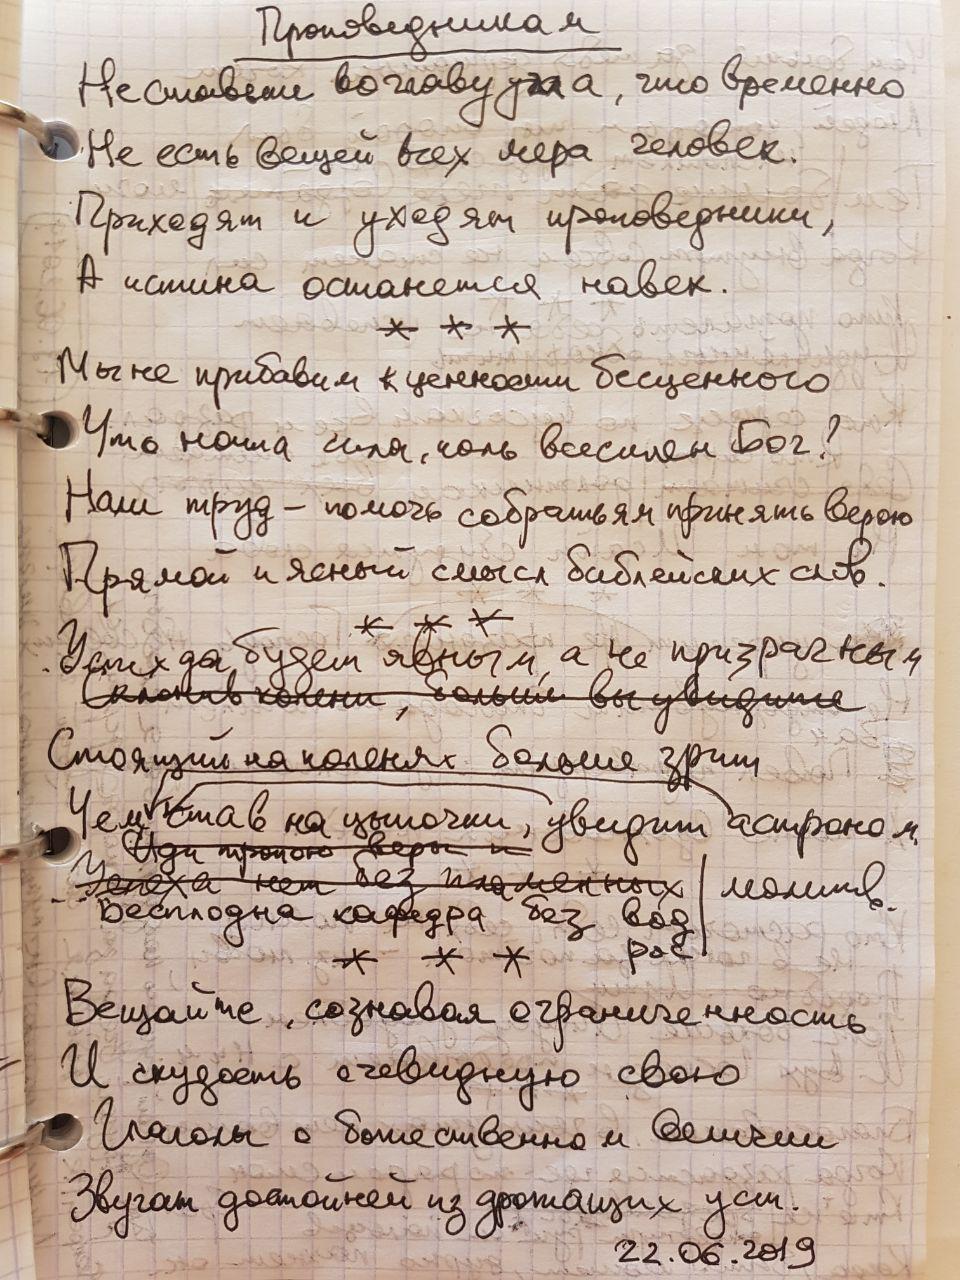 Проповедникам
Не ставьте во главу угла, что временно
Не есть вещей всех мера человек.
Приходят и уходят проповедники,
А истина останется навек.
* * *
Мы не прибавим к ценности бесценного
Что наша сила, коль всесилен Бог?
Наш труд – помочь собратьям принять верою
Прямой и ясный смысл библейских слов.
* * *
Успех да будет явным, а не призрачным
Склонив колени, больше вы увидите
Стоящий на коленях больше зрит
Чем став на цыпочки, увидит астроном,
Иди тропою веры и
Успеха нет без пламенных | молитв.
Бесплодна кафедра без вод
рос
* * *
Вещайте, сознавая ограниченность
И скудость очевидную свою
Глаголы о божественном величии
Звучат достойней из дрожащих уст.
22.06.2019